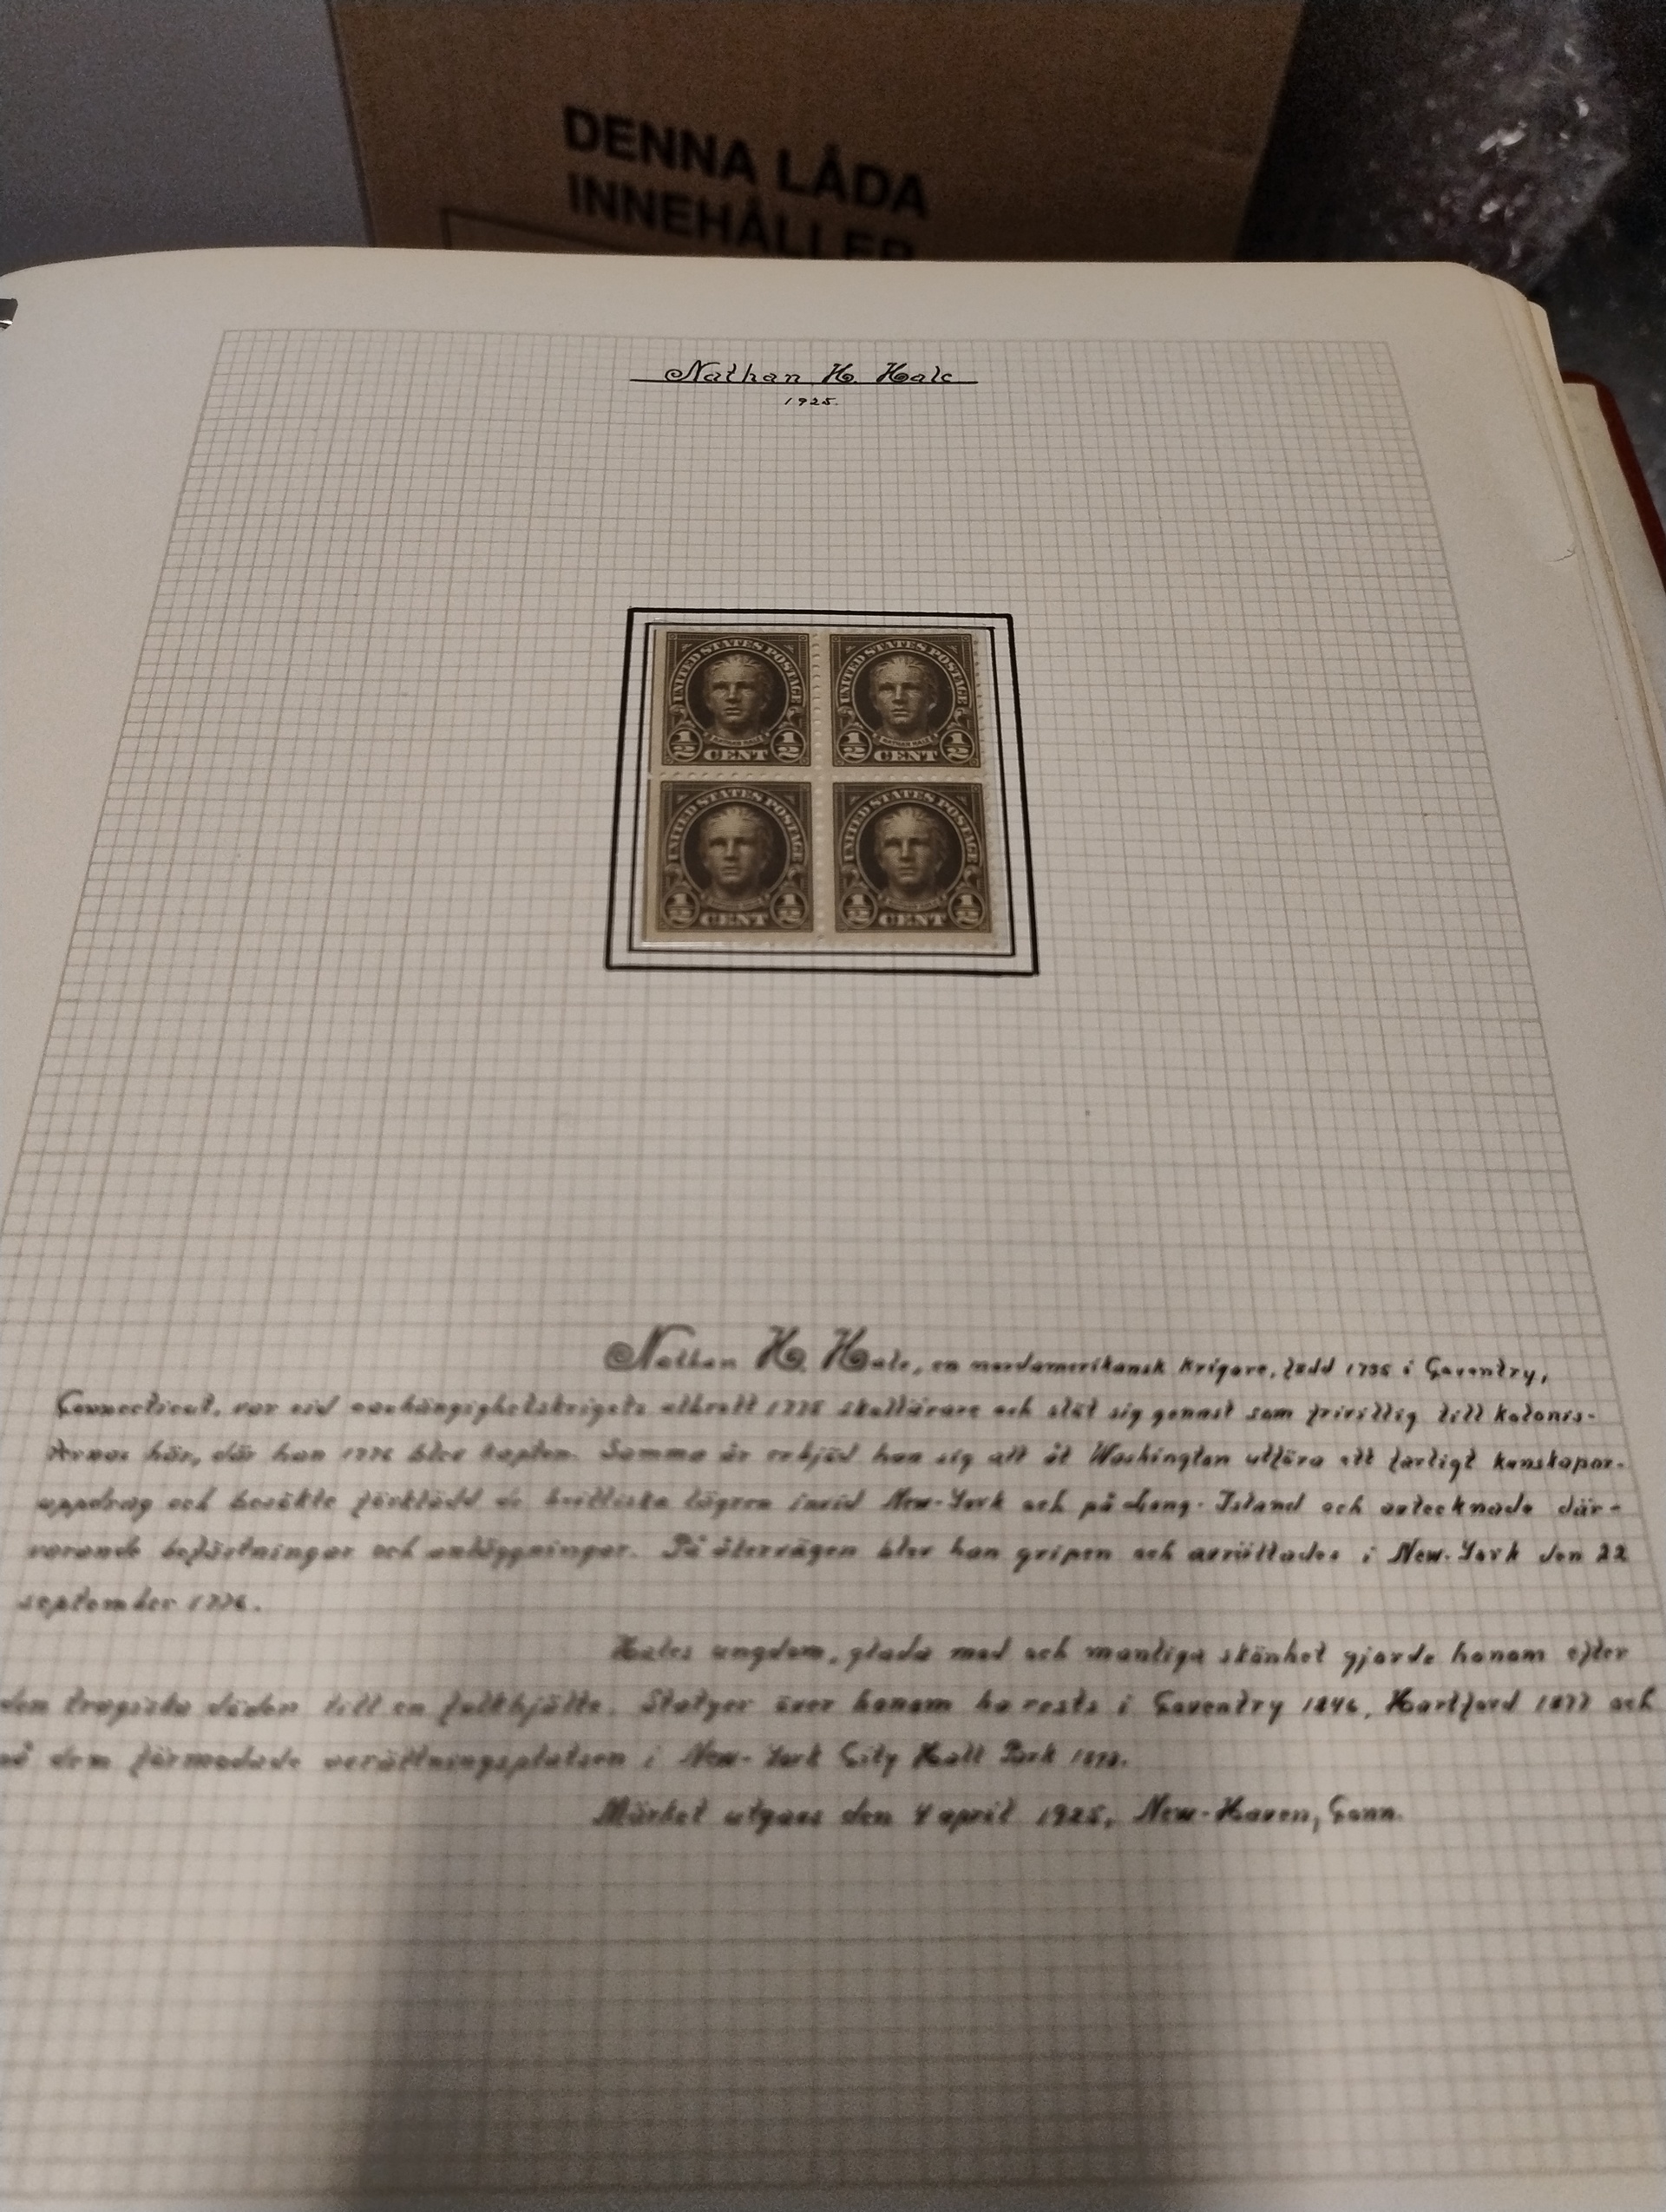 DENNA LÅDA
INNEHÅLLER
Nathan H. Hale
1925.
UNITED STATES POSTAGE UNITED STATES POSTAGE
NATHAN HALE NATHAN HALE
1/2 CENT 1/2 1/2 CENT 1/2
UNITED STATES POSTAGE UNITED STATES POSTAGE
1/2 CENT 1/2 1/2 CENT 1/2
Nathan H. Hale, en nordamerikansk krigare, född 1755 i Coventry,
Connecticut, var vid oavhängighetskrigets utbrott 1775 skollärare och slöt sig genast som frivillig till kolonis-
ternas här, där han 1776 blev kapten. Samma år erbjöd han sig att åt Washington utföra ett farligt kunskapar-
uppdrag och besökte förklädd de brittiska lägren invid New-York och på Long-Island och antecknade där-
varande befästningar och anläggningar. På återvägen blev han gripen och avrättades i New-York den 22
september 1776.
Hales ungdom, glada mod och manliga skönhet gjorde honom efter
den tragiska döden till en folkhjälte. Statyer över honom ha rests i Coventry 1846, Hartford 1877 och
på dem förmodade avrättningsplatsen i New-York City Hall Park
Märket utgavs den 4 april 1925, New-Haven, Conn.